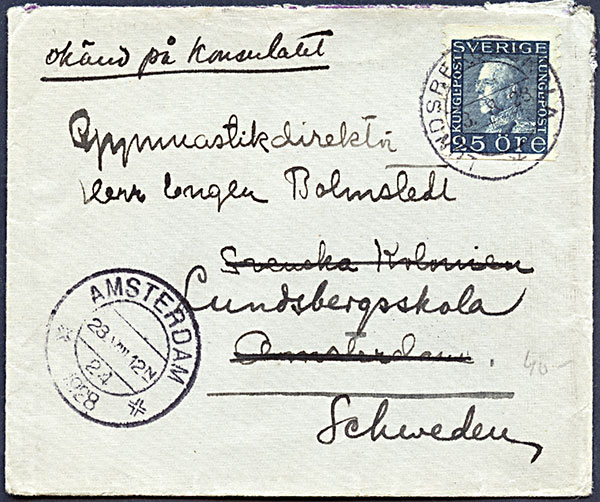 okänd på Konsulatet
SVERIGE
KUNGLPOST
KUNGLPOST
25 ÖRE
Gymnastikdirektör
Herr Bolmstedt
Svenska Kolonien
Lundsbergsskola
Amsterdam.
Schweden
AMSTERDAM
23 VIII 12N
24
1928
40-